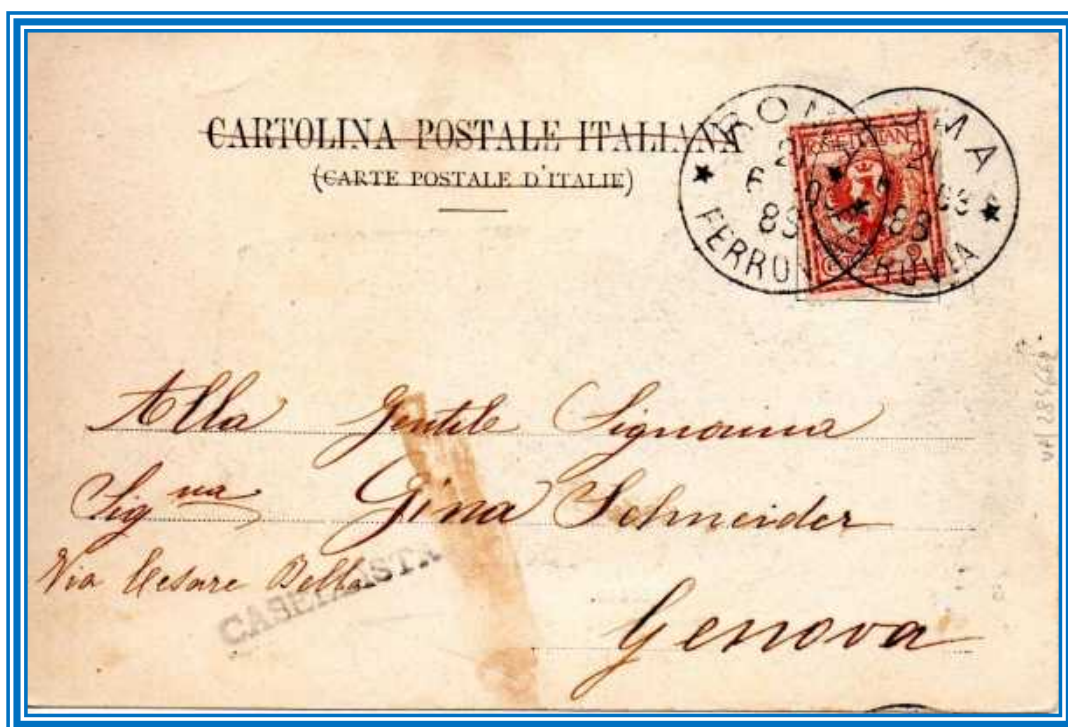 CARTOLINA POSTALE ITALIANA
(CARTE POSTALE D'ITALIE)
ROMA
FERROVIA
ROMA
21
6 03
83
FERROVIA
POSTE ITALIANE
2
Alla Gentile Signorina
Sig na Gina Schneider
Via Cesare Bella
CASELLISTA
Genova